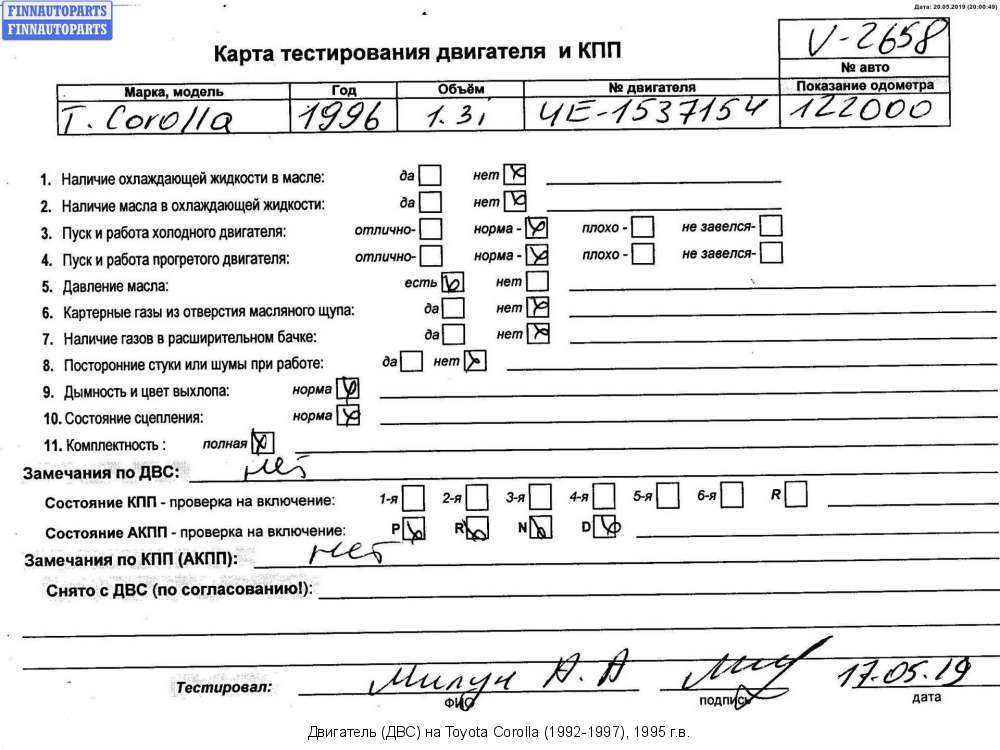 FINNAUTOPARTS
FINNAUTOPARTS
Дата: 20.05.2019 (20:00:49)
Карта тестирования двигателя и КПП
V-2658
№ авто
Марка, модель Год Объём № двигателя Показание одометра
T. Corolla 1996 1.3i 4E-1537154 122000
1. Наличие охлаждающей жидкости в масле: да нет
2. Наличие масла в охлаждающей жидкости: да нет
3. Пуск и работа холодного двигателя: отлично- норма - плохо - не завелся-
4. Пуск и работа прогретого двигателя: отлично- норма - плохо - не завелся-
5. Давление масла: есть нет
6. Картерные газы из отверстия масляного щупа: да нет
7. Наличие газов в расширительном бачке: да нет
8. Посторонние стуки или шумы при работе: да нет
9. Дымность и цвет выхлопа: норма
10. Состояние сцепления: норма
11. Комплектность : полная
Замечания по ДВС: нет
Состояние КПП - проверка на включение: 1-я 2-я 3-я 4-я 5-я 6-я R
Состояние АКПП - проверка на включение: P R N D
Замечания по КПП (АКПП): нет
Снято с ДВС (по согласованию!):
Тестировал: А. А 17.05.19
ФИО подпись дата
Двигатель (ДВС) на Toyota Corolla (1992-1997), 1995 г.в.